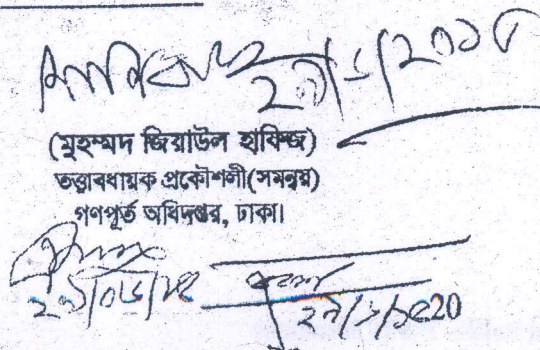 ২৯/৬/২০১৫
(মুহম্মদ জিয়াউল হাফিজ)
তত্ত্বাবধায়ক প্রকৌশলী(সমন্বয়)
গণপূর্ত অধিদপ্তর, ঢাকা।
২৯/০৬/১৫
20